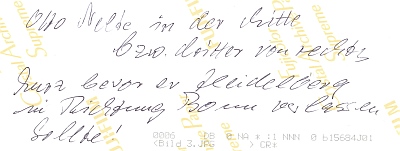 Otto Nelte in der Mitte
bzw. dritter von rechts
kurz bevor er Heidelberg
in Richtung Bonn verlassen
sollte!
0006 DB 0 NA * :1 NNN 0 615684J01
<Bild_3.JPG > CR*